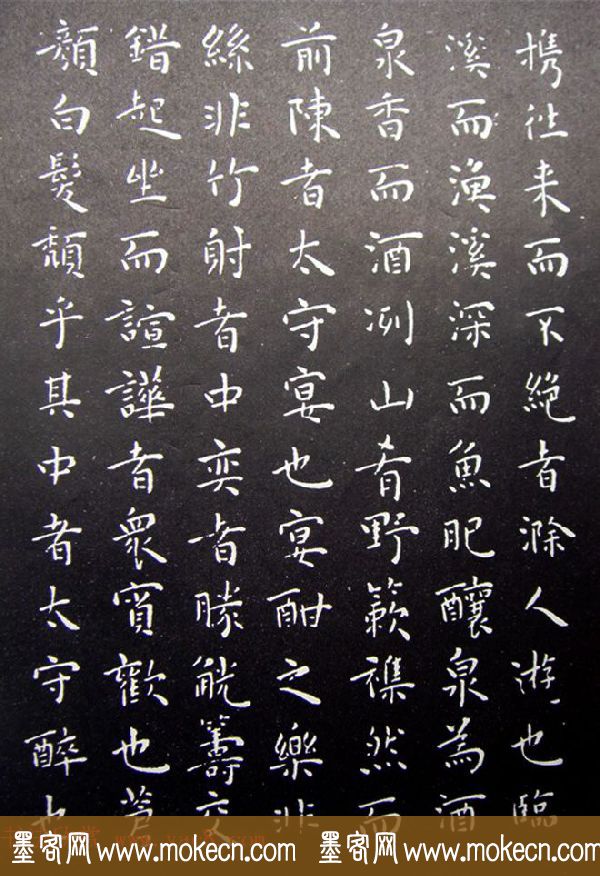 携往来而不絶者滁人游也臨
溪而漁溪深而魚肥釀泉為酒
泉香而酒冽山肴野簌襍然而
前陳者太守宴也宴酣之樂非
絲非竹射者中奕者勝觥籌交
錯起坐而諠譁者衆賓歡也蒼
顏白髮頹乎其中者太守醉也
墨客网 www.mokecn.com 墨客网 www.mokecn.com